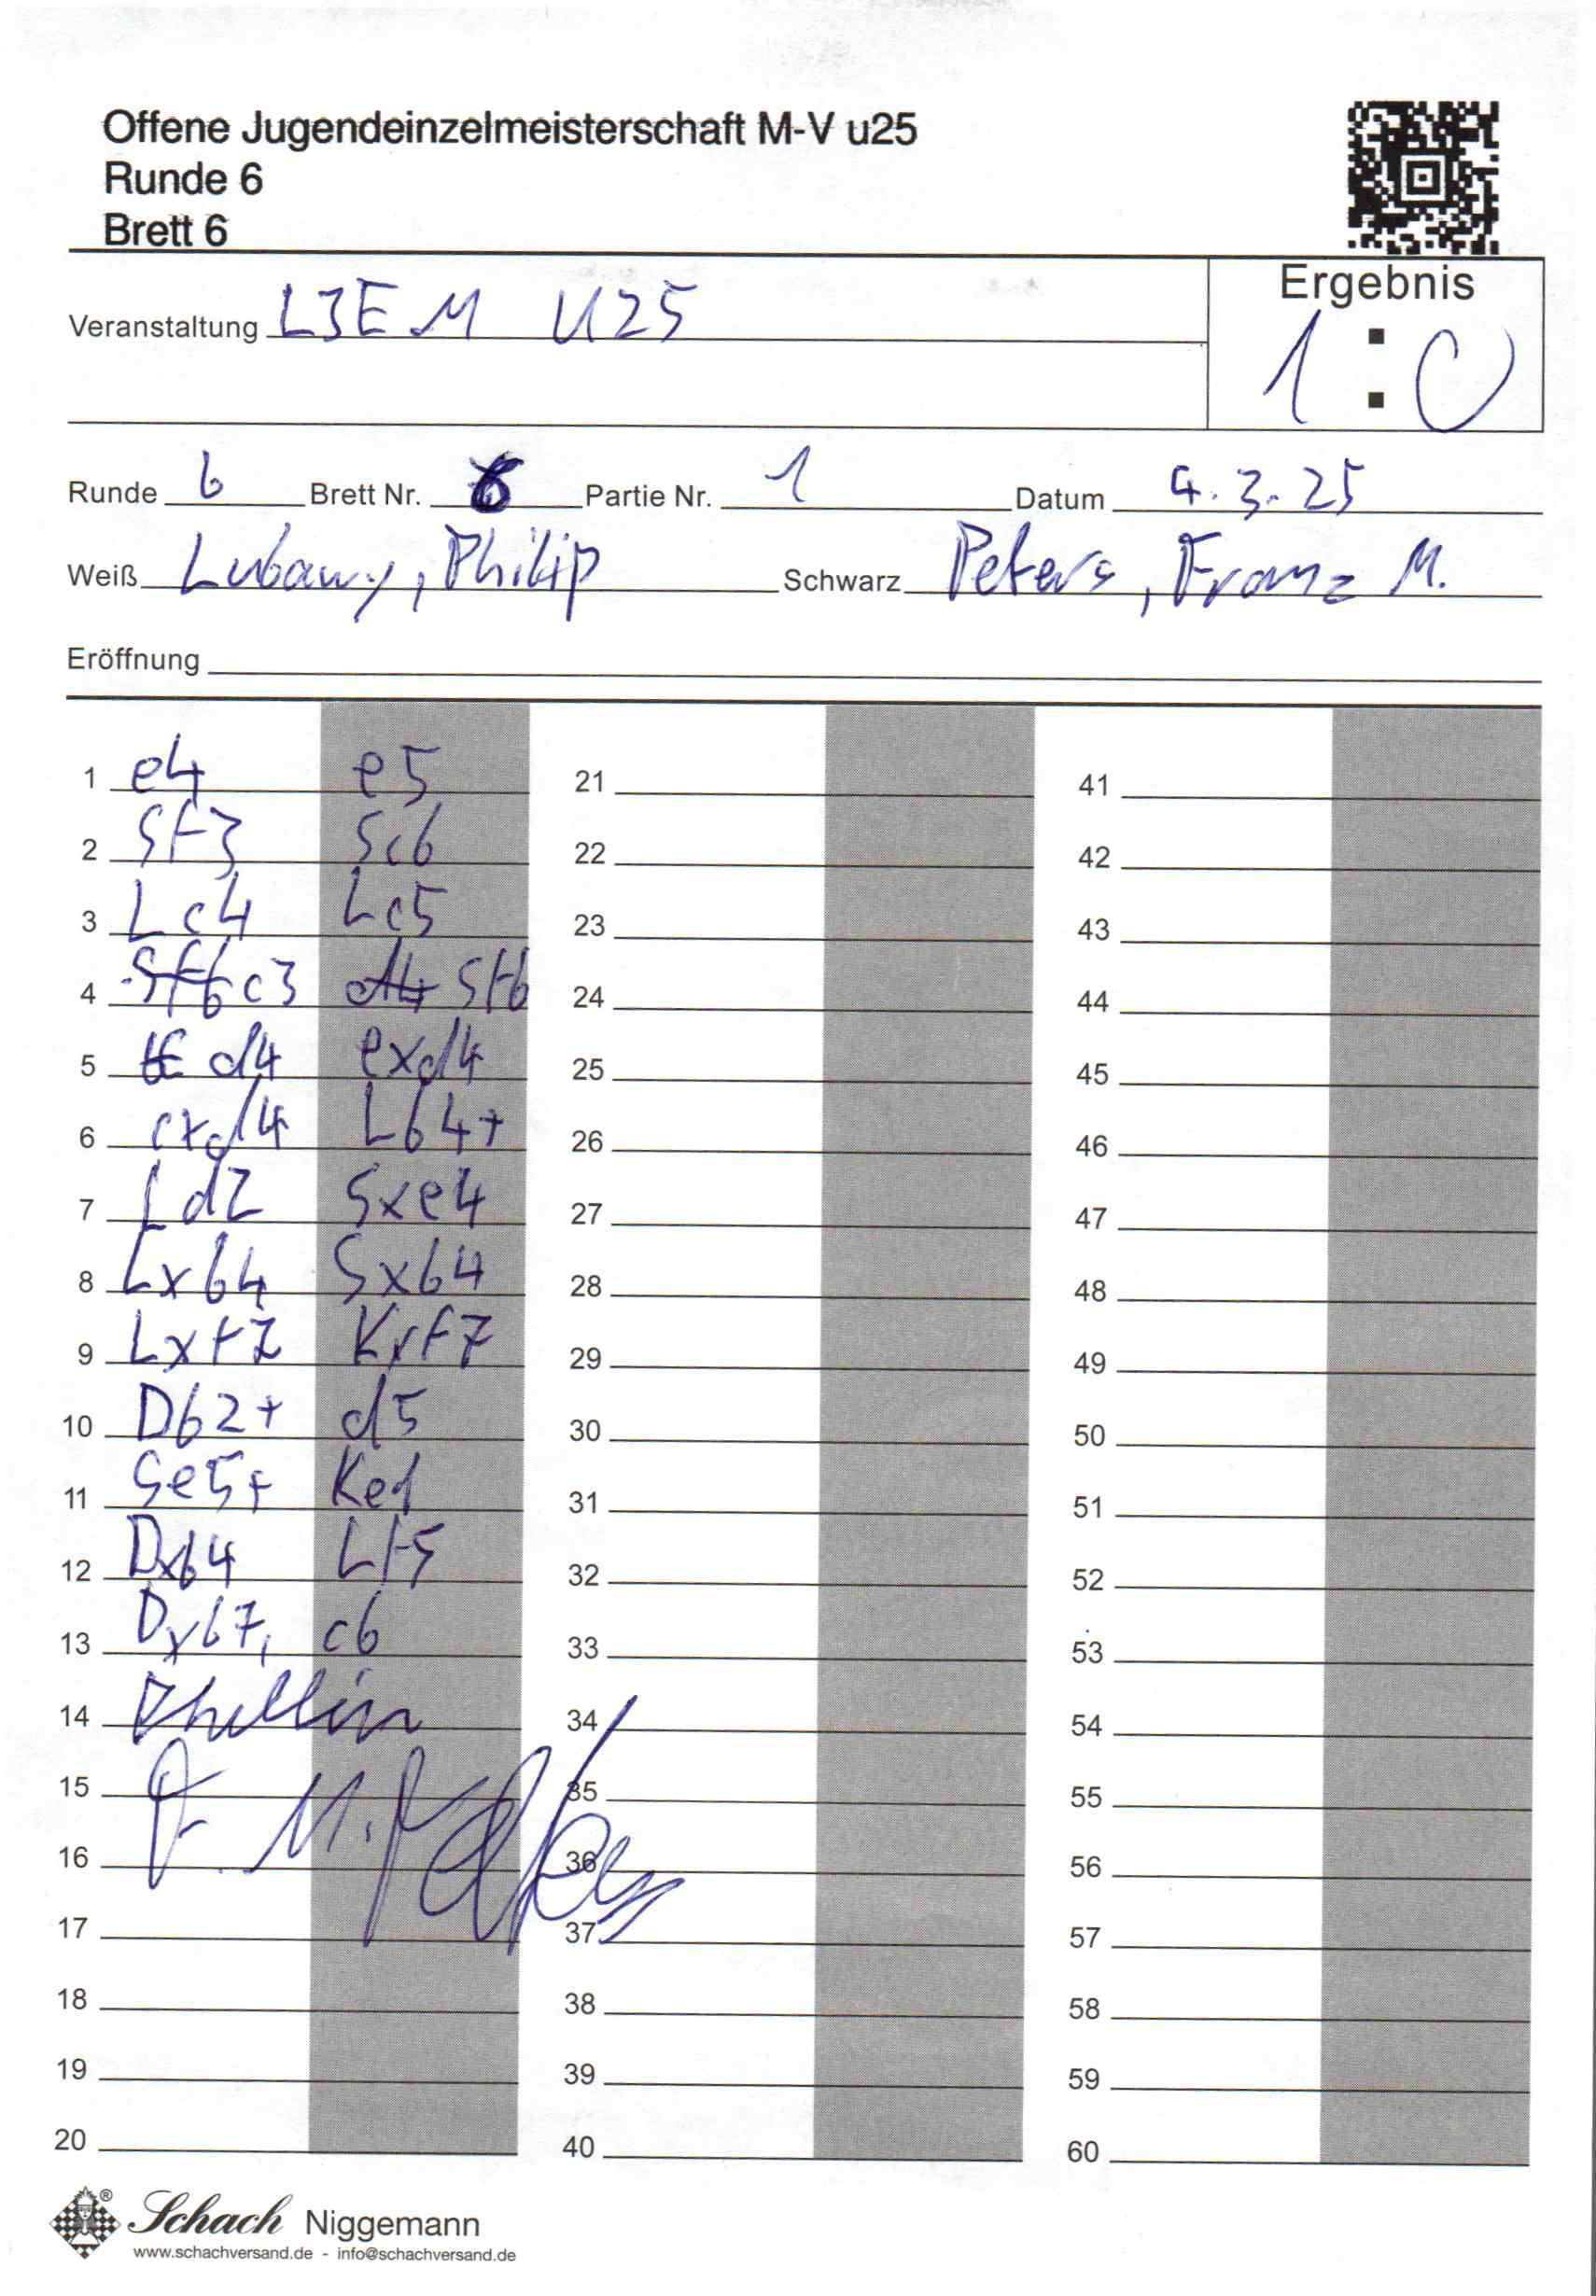 Offene Jugendeinzelmeisterschaft M-V u25
Runde 6
Brett 6
Ergebnis
1 : 0
Veranstaltung LJEM U25
Runde 6 Brett Nr. 6 Partie Nr. 1 Datum 4.3.25
Weiß Lubawy, Philip Schwarz Peters, Franz M.
Eröffnung
1 e4 e5 21 41
2 Sf3 Sc6 22 42
3 Lc4 Lc5 23 43
4 Sf6 c3 d4 Sf6 24 44
5 d4 exd4 25 45
6 cxd4 Lb4+ 26 46
7 Ld2 Sxe4 27 47
8 Lxb4 Sxb4 28 48
9 Lxf7 Kxf7 29 49
10 Db2+ d5 30 50
11 Se5+ Ke1 31 51
12 Dxb4 Lf5 32 52
13 Dxb7, c6 33 53
14 34 54
15 35 55
16 36 56
17 37 57
18 38 58
19 39 59
20 40 60
® Schach Niggemann
www.schachversand.de - info@schachversand.de